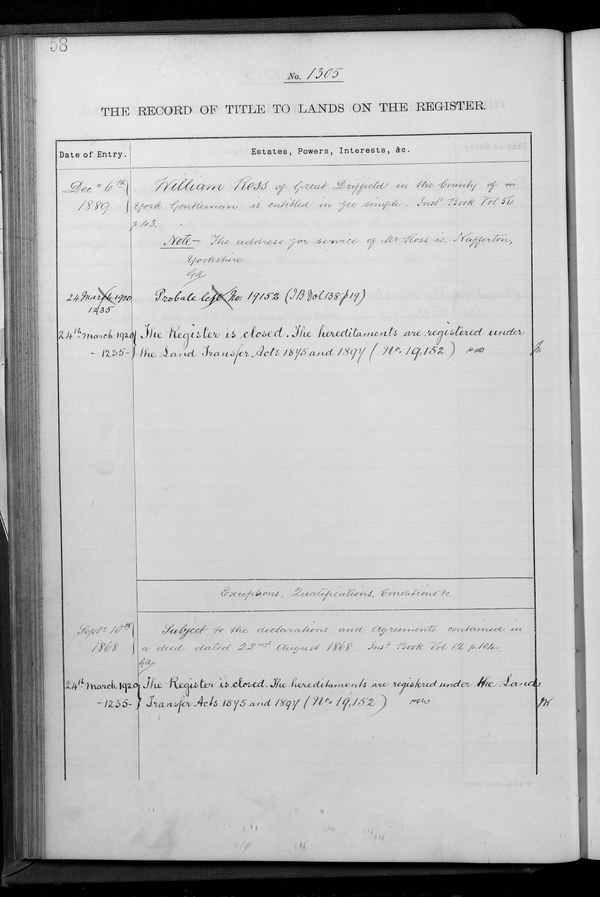 58
No. 1305
THE RECORD OF TITLE TO LANDS ON THE REGISTER.
Date of Entry.
Estates, Powers, Interests, &c.
Decr 6th
1889
William Ross of Great Dryffield in the County of
York Gentleman is entitled in fee simple. Inst Book Vol 56
p 43.
Note - The address for service of Mr Ross is, Nafferton,
Yorkshire
24 March 1920
1235
Probate left No. 19152 (I B Vol 138 p 19)
24th March 1920
- 1235 -
The Register is closed. The hereditaments are registered under
the Land Transfer Acts 1875 and 1897 (No. 19,152)
Exceptions, Qualifications, Conditions &c
Septr 10th
1868
Subject to the declarations and agreements contained in
a deed dated 22nd August 1868 Inst Book Vol 12 p 104.
24th March 1920
- 1235 -
The Register is closed. The hereditaments are registered under the Land
Transfer Acts 1875 and 1897 (No. 19,152)